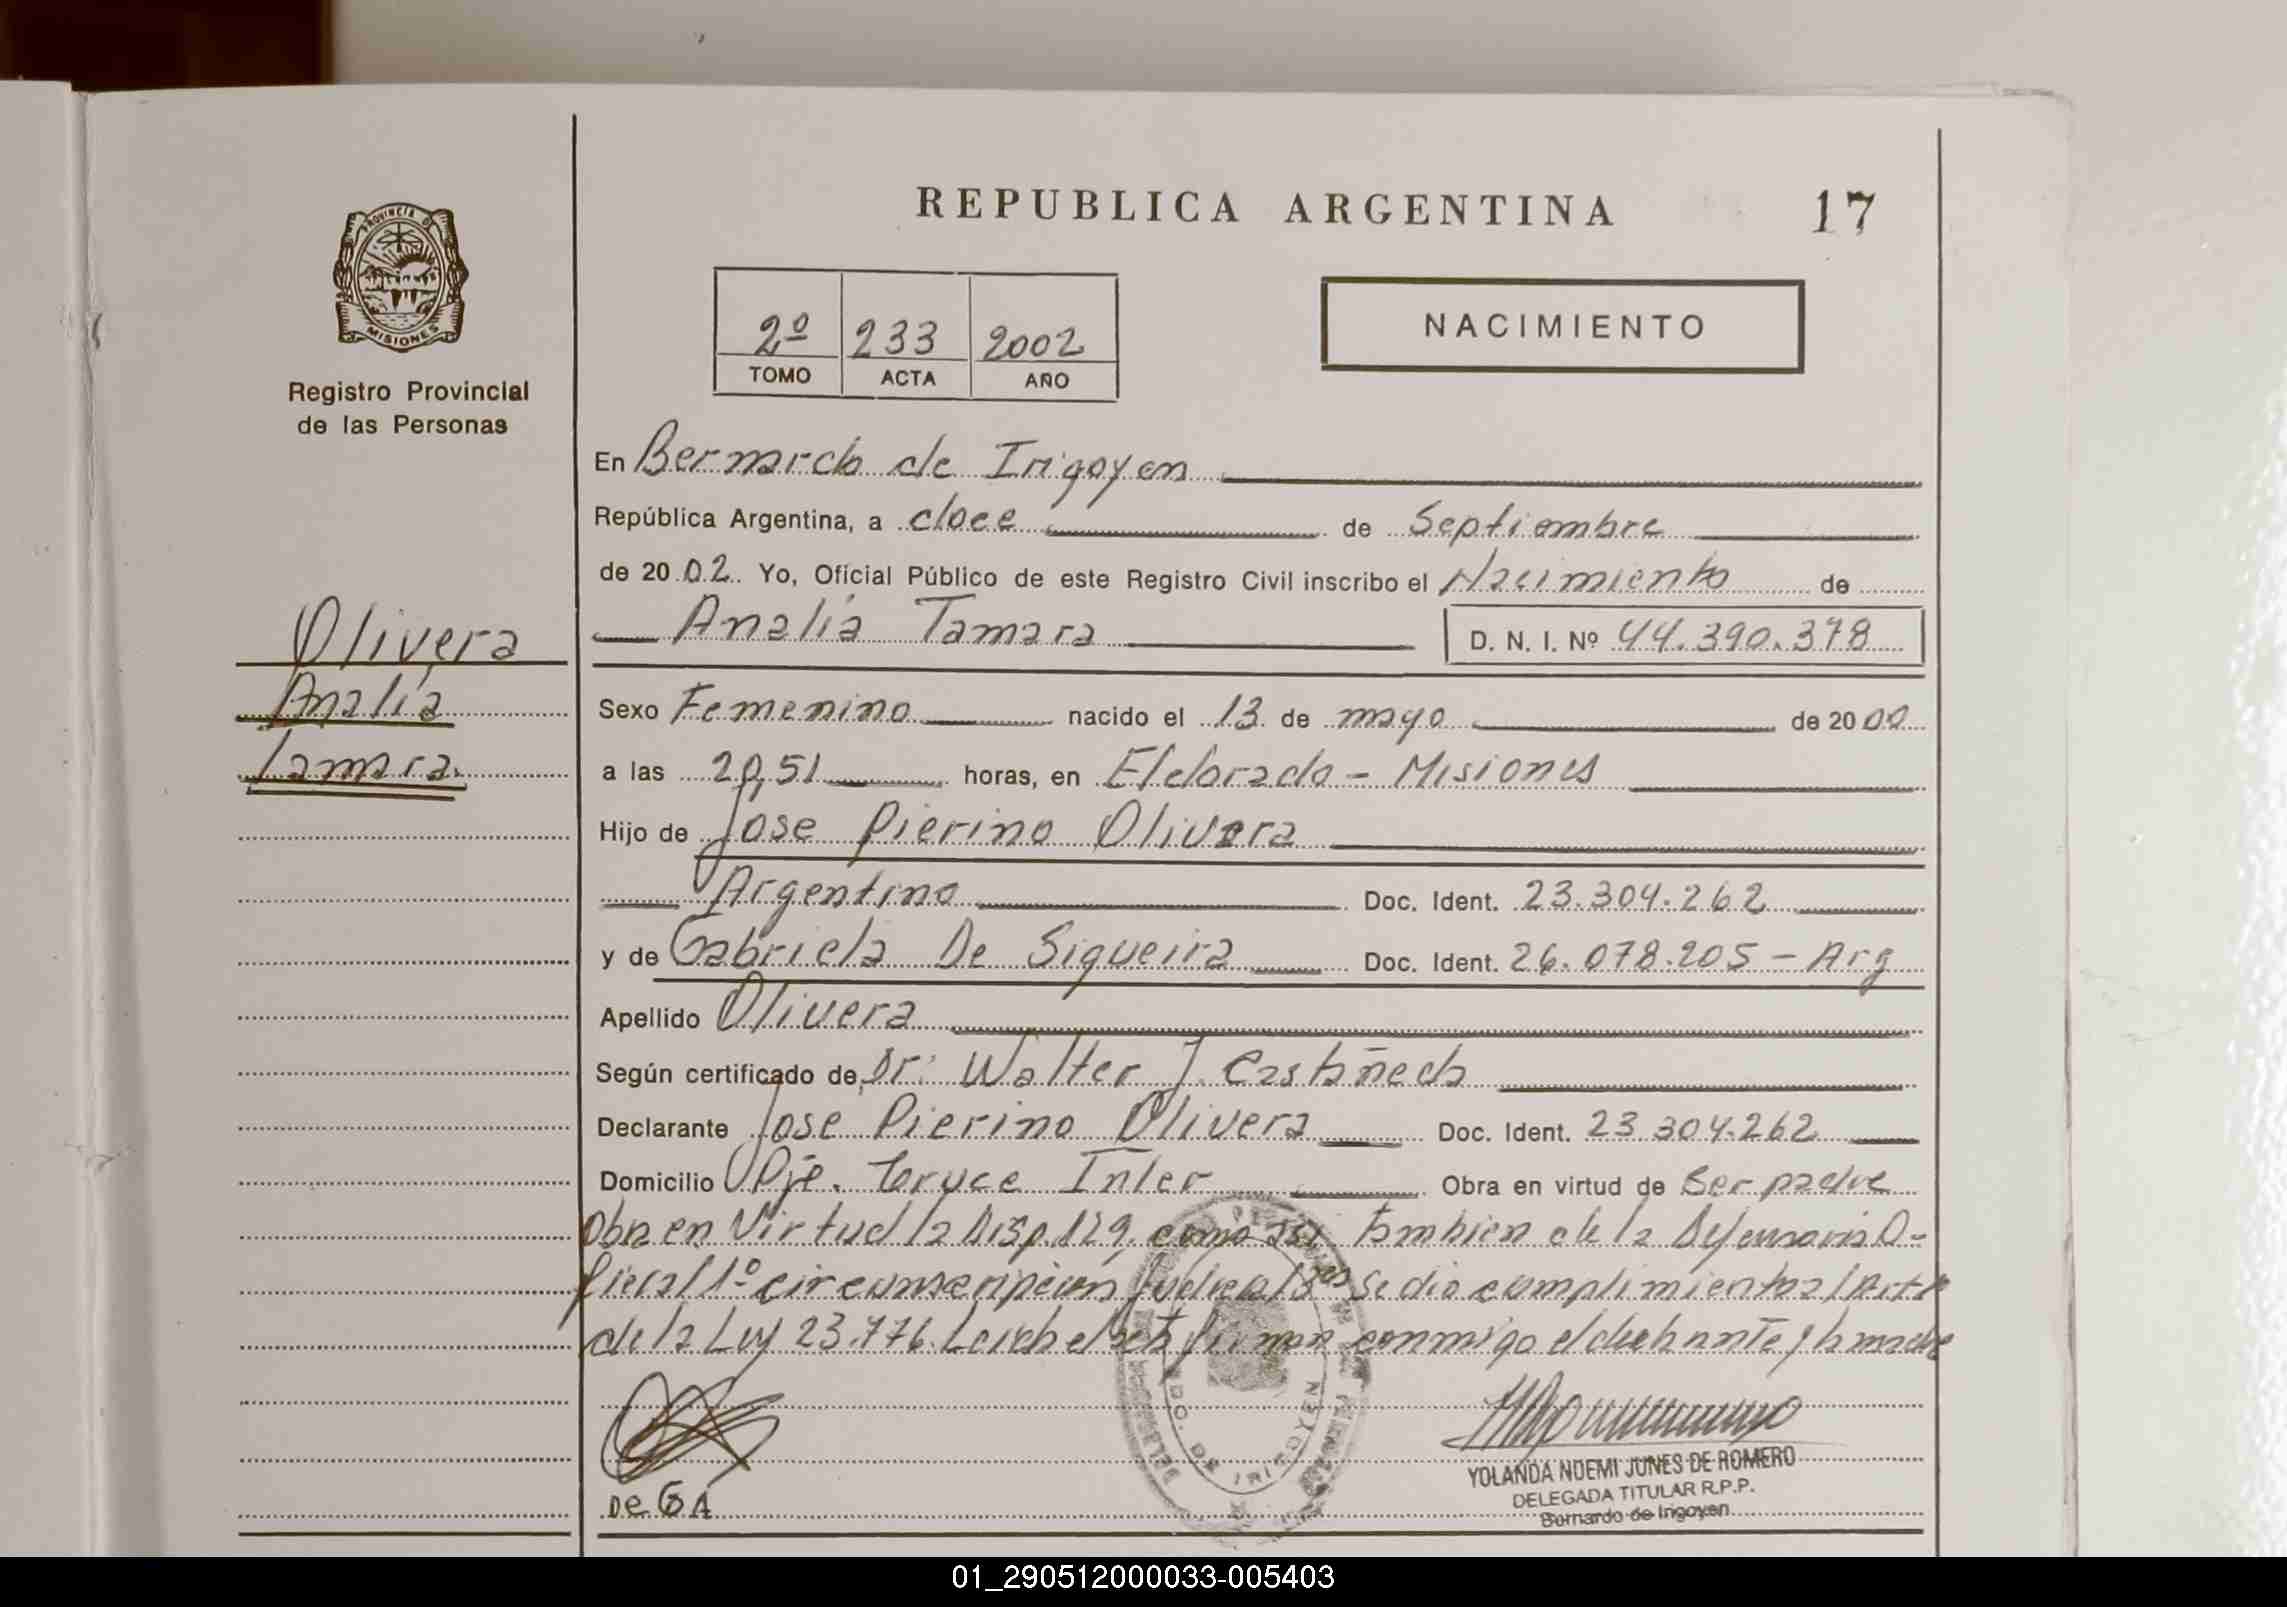 REPUBLICA ARGENTINA
17
PROVINCIA D
MISIONES
Registro Provincial
de las Personas
2º 233 2002
TOMO ACTA AÑO
NACIMIENTO
En Bernardo de Irigoyen
República Argentina, a doce de Septiembre
de 2002. Yo, Oficial Público de este Registro Civil inscribo el Nacimiento de
Analía Tamara D. N. I. Nº 44.390.378
Olivera
Analía
Tamara
Sexo Femenino nacido el 13 de mayo de 2000
a las 20,51 horas, en Eldorado - Misiones
Hijo de Jose Pierino Olivera
Argentino Doc. Ident. 23.304.262
y de Gabriela De Siqueira Doc. Ident. 26.078.205 - Arg
Apellido Olivera
Según certificado de Dr. Walter J. Castañeda
Declarante Jose Pierino Olivera Doc. Ident. 23.304.262
Domicilio Pje. Inter Obra en virtud de Ser padre
Obra en Virtud la Disp. 129, como asi tambien de la
1º circunscripción Se dio cumplimiento al Art
de la Ley 23.776. Leida el acta firman conmigo el y la madre
De GA
DELEGACION
BDO. DE IRIGOYEN
YOLANDA NOEMI JUNES DE ROMERO
DELEGADA TITULAR R.P.P.
Bernardo de Irigoyen
01_290512000033-005403